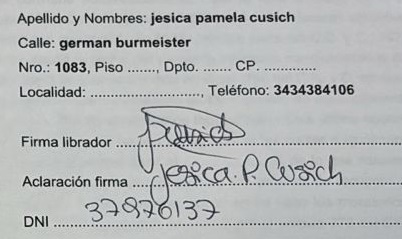 Apellido y Nombres: jesica pamela cusich
Calle: german burmeister
Nro.: 1083, Piso ......., Dpto. ....... CP. .............
Localidad: ..........................., Teléfono: 3434384106
Firma librador
Aclaración firma ... Jesica. P. Cusich
DNI ... 37976137